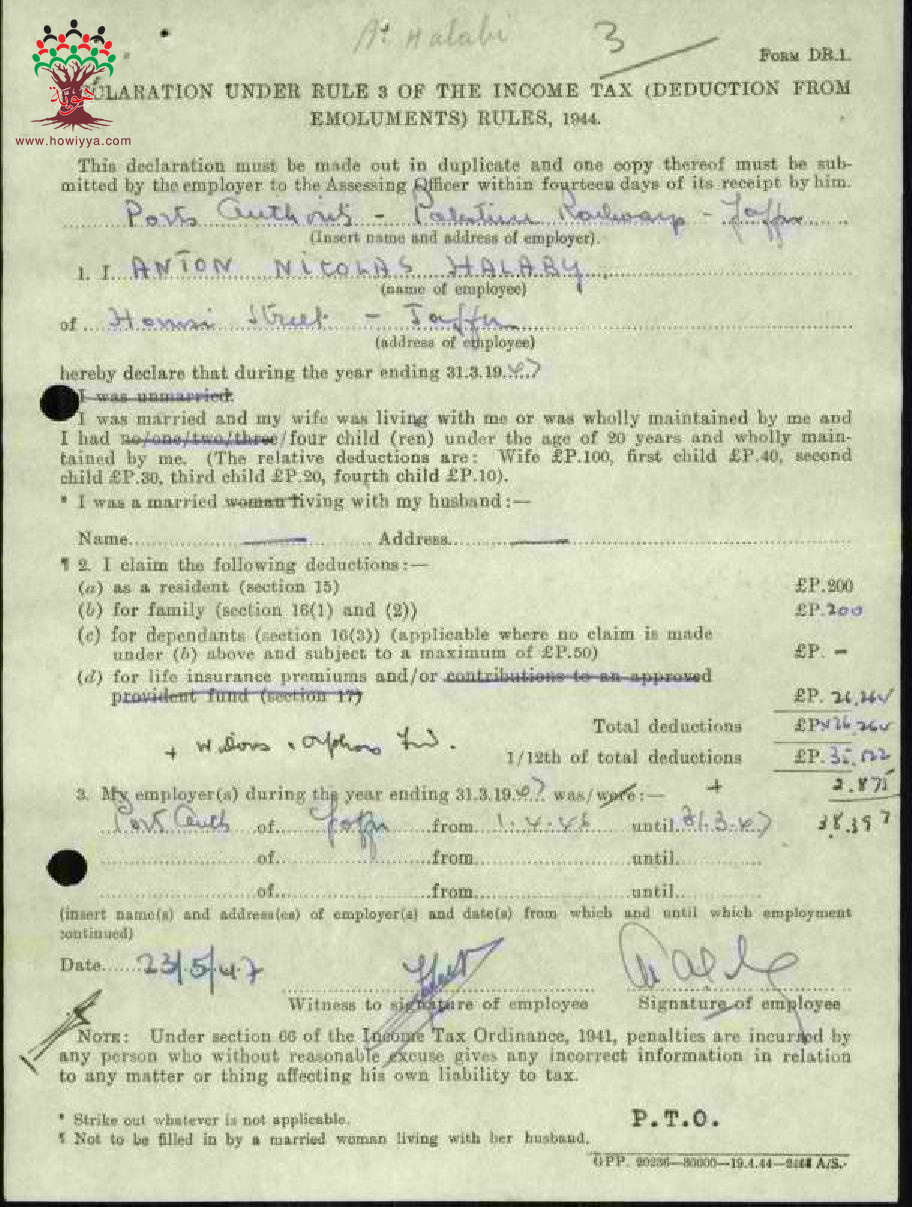 A. Halabi 3
FORM DR.1.
هوية
DECLARATION UNDER RULE 3 OF THE INCOME TAX (DEDUCTION FROM
EMOLUMENTS) RULES, 1944.
www.howiyya.com
This declaration must be made out in duplicate and one copy thereof must be sub-
mitted by the employer to the Assessing Officer within fourteen days of its receipt by him.
Ports Authority - Palestine Railways - Jaffa
(Insert name and address of employer).
1. I ANTON NICOLAS HALABY
(name of employee)
of Homsi Street - Jaffa
(address of employee)
hereby declare that during the year ending 31.3.19 47
I was unmarried.
I was married and my wife was living with me or was wholly maintained by me and
I had no/one/two/three/four child (ren) under the age of 20 years and wholly main-
tained by me. (The relative deductions are: Wife £P.100, first child £P.40, second
child £P.30, third child £P.20, fourth child £P.10).
* I was a married woman living with my husband:—
Name — Address —
¶ 2. I claim the following deductions:—
(a) as a resident (section 15) £P.200
(b) for family (section 16(1) and (2)) £P.200
(c) for dependants (section 16(3)) (applicable where no claim is made
under (b) above and subject to a maximum of £P.50) £P. -
(d) for life insurance premiums and/or contributions to an approved
provident fund (section 17) £P. 26,264
Total deductions £P 426,264
+ Widows & Orphans Fund.
1/12th of total deductions £P. 35,522
3. My employer(s) during the year ending 31.3.19 47 was/were:— + 2.875
Port Auth of Jaffa from 1.4.46 until 31.3.47 38.397
of from until
of from until
(insert name(s) and address(es) of employer(s) and date(s) from which and until which employment
continued)
Date 23/5/47
Witness to signature of employee Signature of employee
NOTE: Under section 66 of the Income Tax Ordinance, 1941, penalties are incurred by
any person who without reasonable excuse gives any incorrect information in relation
to any matter or thing affecting his own liability to tax.
* Strike out whatever is not applicable. P.T.O.
¶ Not to be filled in by a married woman living with her husband.
GPP. 20236—30000—19.4.44— A/S.